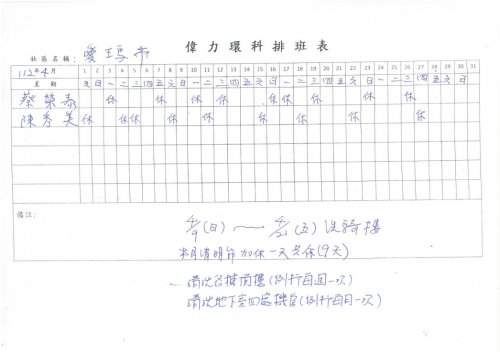 偉力環科排班表
社區名稱：愛
112年4月 1 2 3 4 5 6 7 8 9 10 11 12 13 14 15 16 17 18 19 20 21 22 23 24 25 26 27 28 29 30 31
星期 六 日 一 二 三 四 五 六 日 一 二 三 四 五 六 日 一 二 三 四 五 六 日 一 二 三 四 五 六 日
蔡榮泰 休 休 休 休 休 休 休 休
陳秀美 休 休 休 休 休 休 休 休 休
備註：
(日)～ (五)洗騎樓
本月清明節加休一天共休(9天)
清洗各棟 (例行每週一次)
清洗地下室 (例行每月一次)